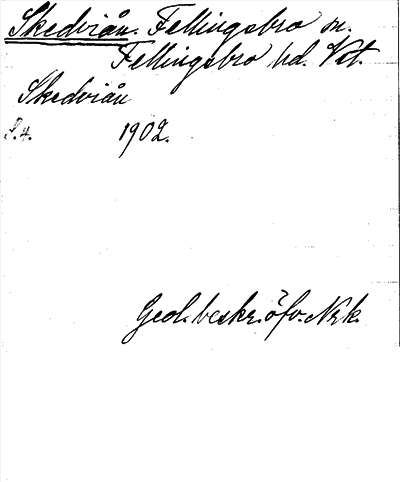 Skedviån. Fellingsbro sn.
Fellingsbro hd. Vstm.
Skedviån
S.4. 1902.
Geol. beskr. öfv. Nrk.